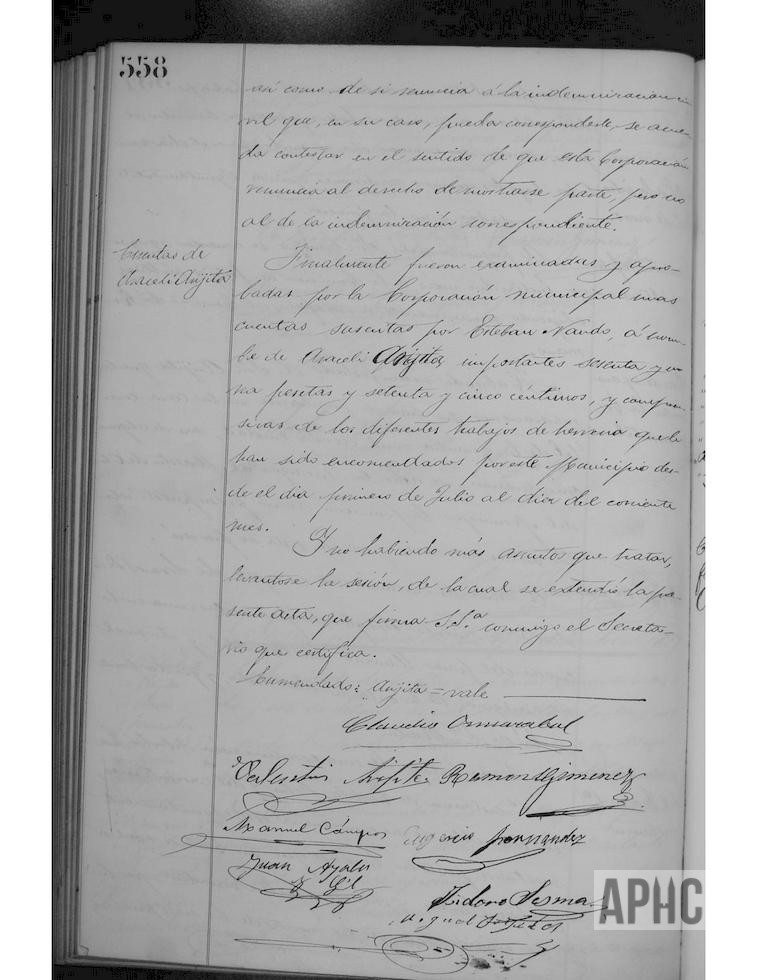 558
así como de si renuncia á la indemnizacion ci-
vil que, en su caso, pueda corresponderle, se acuer-
da contestar en el sentido de que esta Corporación
renuncia al derecho de mostrarse parte, pero no
al de la indemnización correspondiente.
Cuentas de
Araceli Arijita
Finalmente fueron examinadas y apro-
badas por la Corporación municipal unas
cuentas suscritas por Esteban Nando, á nom-
bre de Araceli Arijita importantes sesenta y u-
na pesetas y setenta y cinco céntimos, y compren-
sivas de los diferentes trabajos de herreria que le
han sido encomendados por este Municipio des-
de el dia primero de Julio al diez del corriente
mes.
Y no habiendo más asuntos que tratar,
levantose la sesión, de la cual se extendió la pre-
sente acta, que firma S.Sª. conmigo el Secreta-
rio que certifica.
Enmendado: Arijita = vale
Claudio
Valentin Ramon Gimenez
Manuel Campos Eugenio Fernandez
Juan Ayala
y Gil
Isidoro Sesma
Miguel
APHC